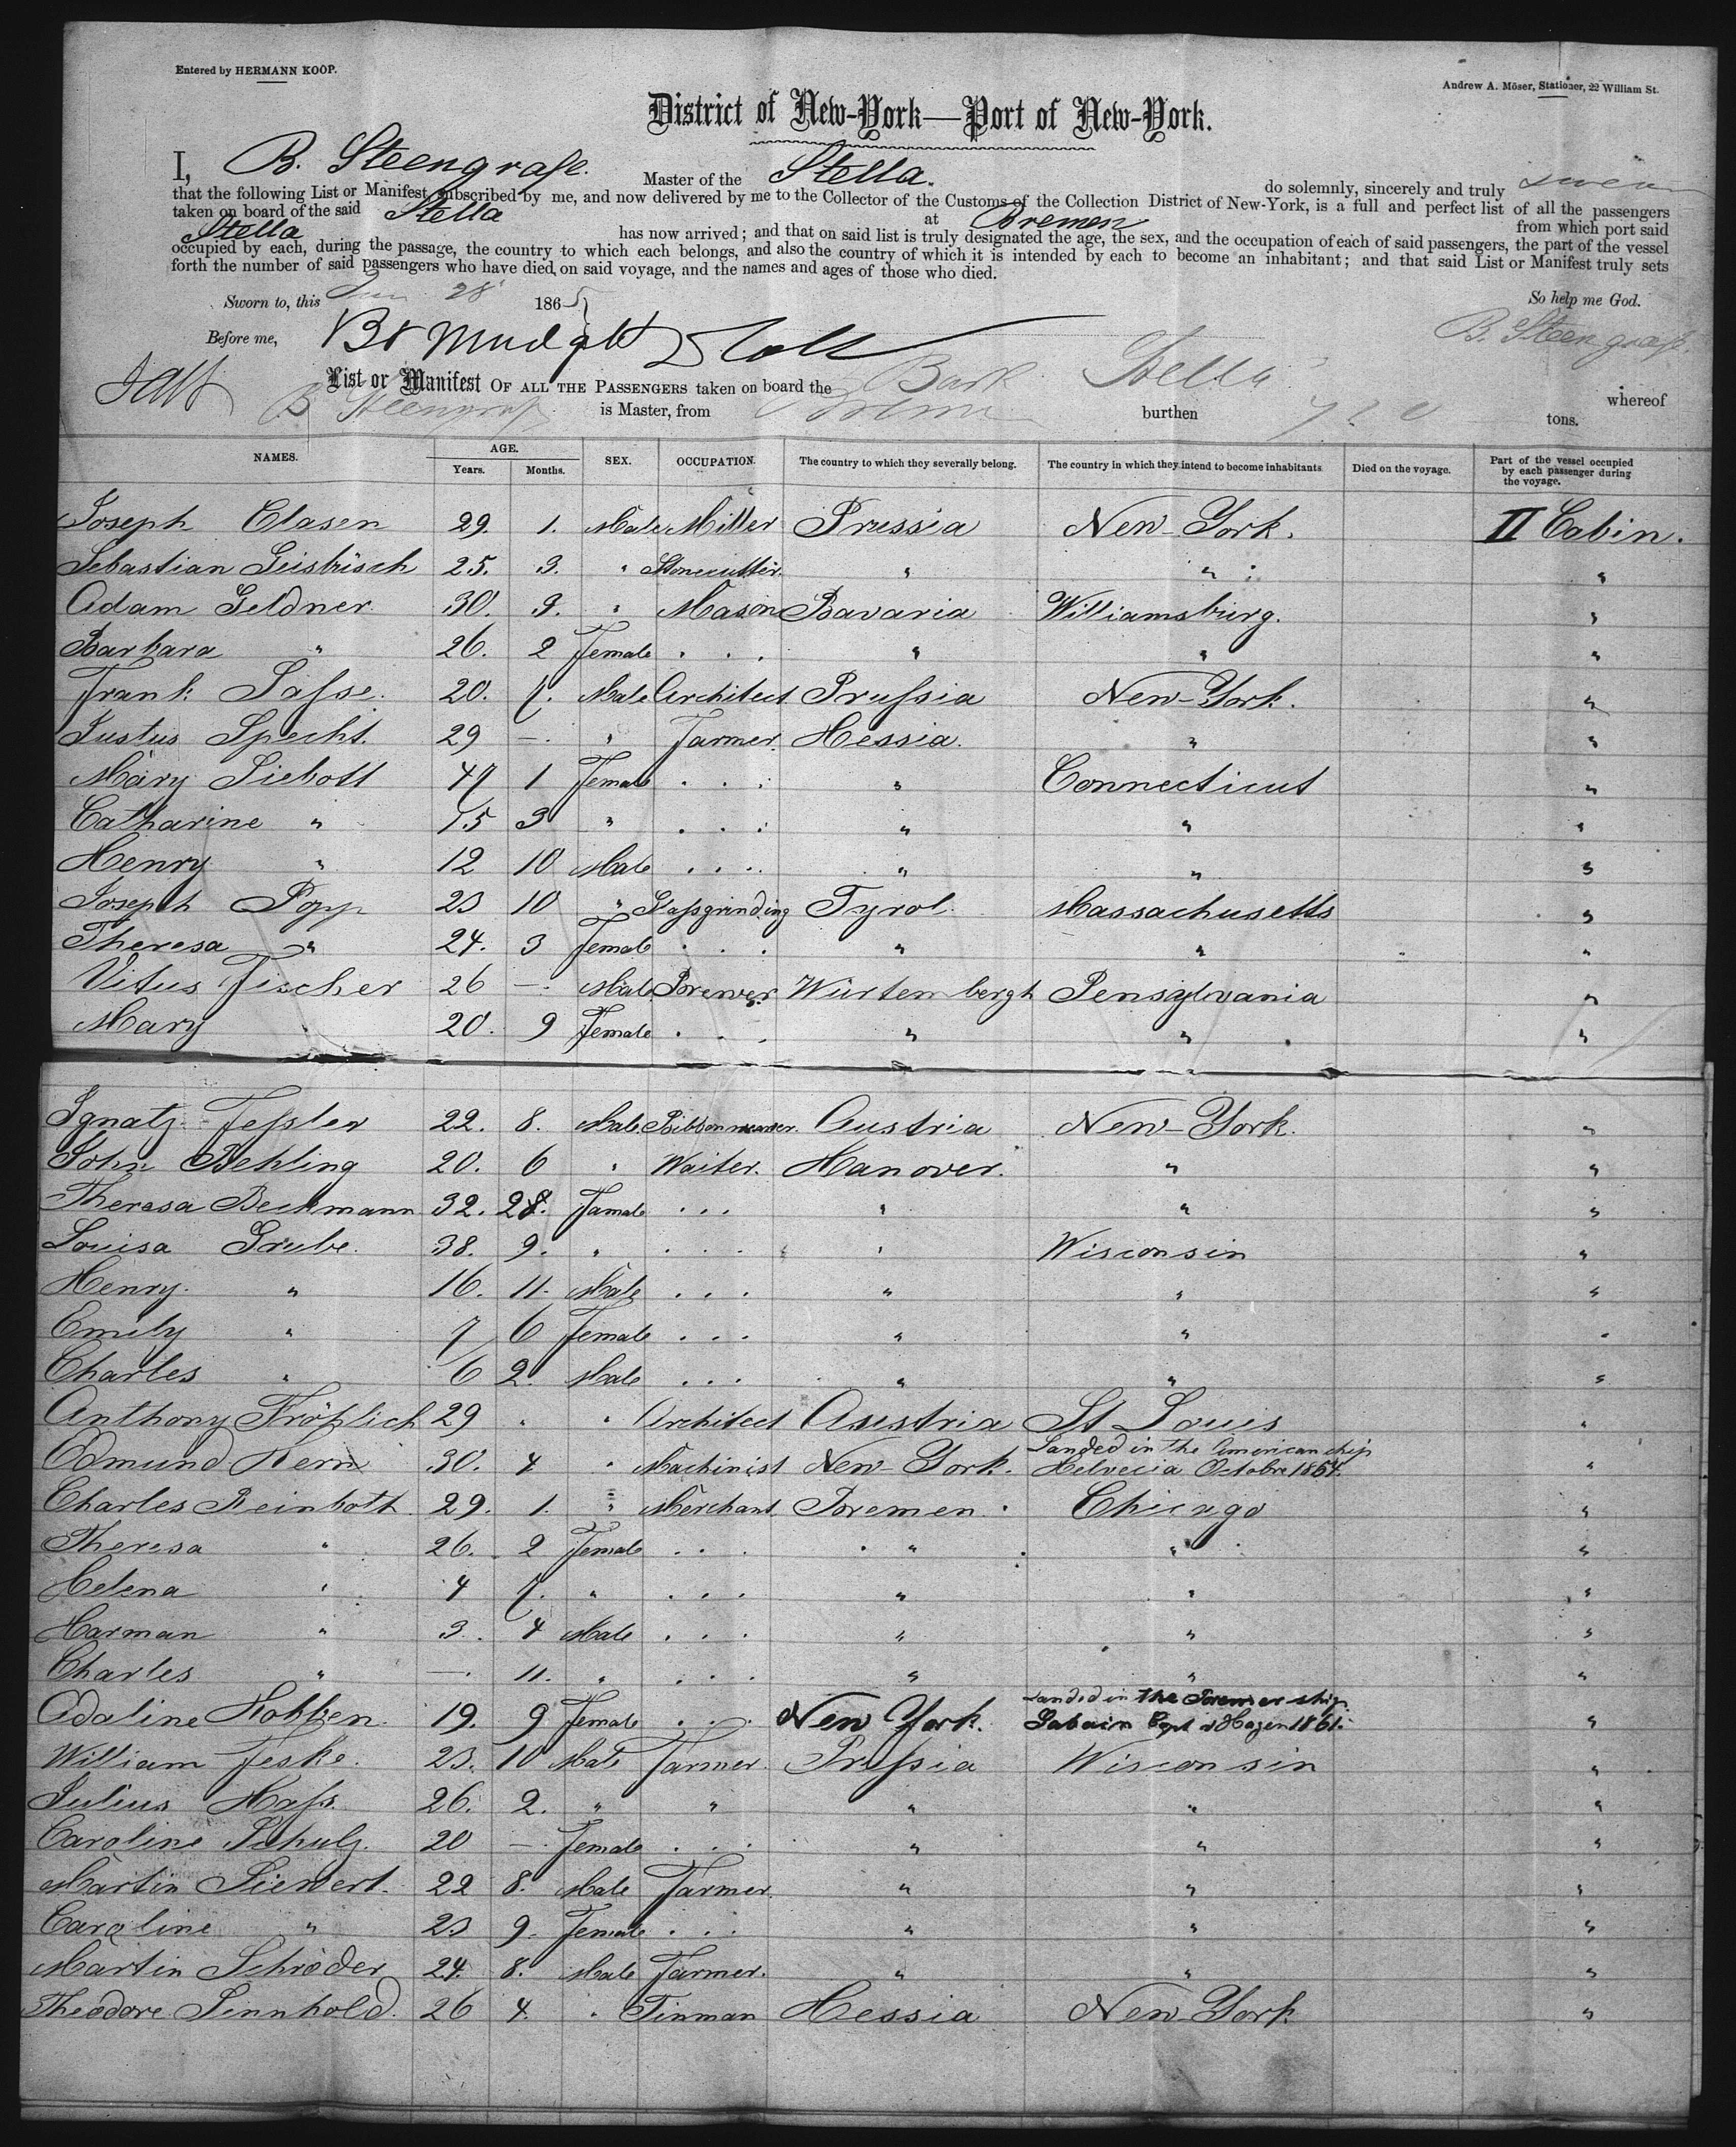 Entered by HERMANN KOOP.
Andrew A. Möser, Stationer, 22 William St.
District of New-York—Port of New-York.
I, B. Steengrafe. Master of the Stella. do solemnly, sincerely and truly swear
that the following List or Manifest, subscribed by me, and now delivered by me to the Collector of the Customs of the Collection District of New-York, is a full and perfect list of all the passengers
taken on board of the said Stella at Bremen from which port said
Stella has now arrived; and that on said list is truly designated the age, the sex, and the occupation of each of said passengers, the part of the vessel
occupied by each, during the passage, the country to which each belongs, and also the country of which it is intended by each to become an inhabitant; and that said List or Manifest truly sets
forth the number of said passengers who have died, on said voyage, and the names and ages of those who died.
Sworn to, this 28 1865 So help me God.
Before me, B. Steengrafe.
List or Manifest OF ALL THE PASSENGERS taken on board the Bark Stella whereof
B Steengrafe is Master, from Bremen burthen tons.
NAMES. AGE. Years. Months. SEX. OCCUPATION. The country to which they severally belong. The country in which they intend to become inhabitants Died on the voyage. Part of the vessel occupied by each passenger during the voyage.
Joseph Clasen 29. 1. Male Miller Prussia New-York. II Cabin.
Sebastian Geisbüsch 25. 3. " Stonecutter. " " "
Adam Geldner. 30. 9. " Mason Bavaria Williamsburg. "
Barbara " 26. 2 Female . . . " " "
Frank Sasse. 20. 7. Male Architect. Prussia New-York. "
Justus Specht. 29 — " Farmer. Hessia. " "
Mary Siebott 47 1 Female . . . " Connecticut "
Catharine " 15 3 " . . . " " "
Henry " 12 10 Male . . . " " "
Joseph Popp 23 10 " Glassgrinding Tyrol. Massachusetts "
Theresa " 24. 3 Female . . . " " "
Vitus Fischer 26 — Male Brewer Würtembergh Pensylvania "
Mary " 20. 9 Female . . . " " "
Ignatz Fessler 22. 8. Male. Ribbonweaver. Austria New-York. "
John Behling 20. 6 " Waiter. Hanover. " "
Theresa Beckmann 32. 28. Famale . . . " " "
Louisa Grube. 38. 9. " . . . " Wisconsin "
Henry. " 16. 11. Male . . . " " "
Emily " 7 6 Female . . . " " "
Charles " 6 2. Male . . . " " "
Anthony Fröhlich 29 . " Architect Austria St Louis "
Edmund Kern 30. 4 " Machinist New-York. Landed in the American ship
Helvecia Octobre 1854. "
Charles Reinboth. 29. 1. " Merchant. Bremen. Chicago "
Theresa " 26. 2 Female . . . " " "
Helena " 4 7. " . . . " " "
Harman " 3. 4 Male . . . " " "
Charles " — 11. " . . . " " "
Adaline Hobben. 19. 9 Female . . . New York. Landed in the Bremer ship
Capt v Hagen 1861. "
William Jeske. 23. 10 Male Farmer. Prussia Wisconsin "
Julius Hass. 26. 2. " " " " "
Caroline Schulz. 20 — Female . . . " " "
Martin Siewert. 22 8. Male Farmer. " " "
Caroline " 23 9. Female . . . " " "
Martin Schröder 24. 8. Male Farmer. " " "
Theodore Sinnhold. 26 4. " Tinman Hessia New-York. "